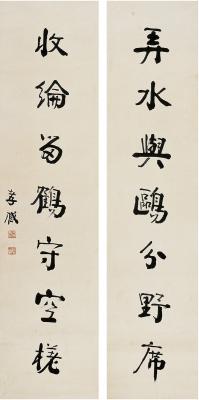 弄水與鷗分野席
收綸留鶴守空樓
孝臧